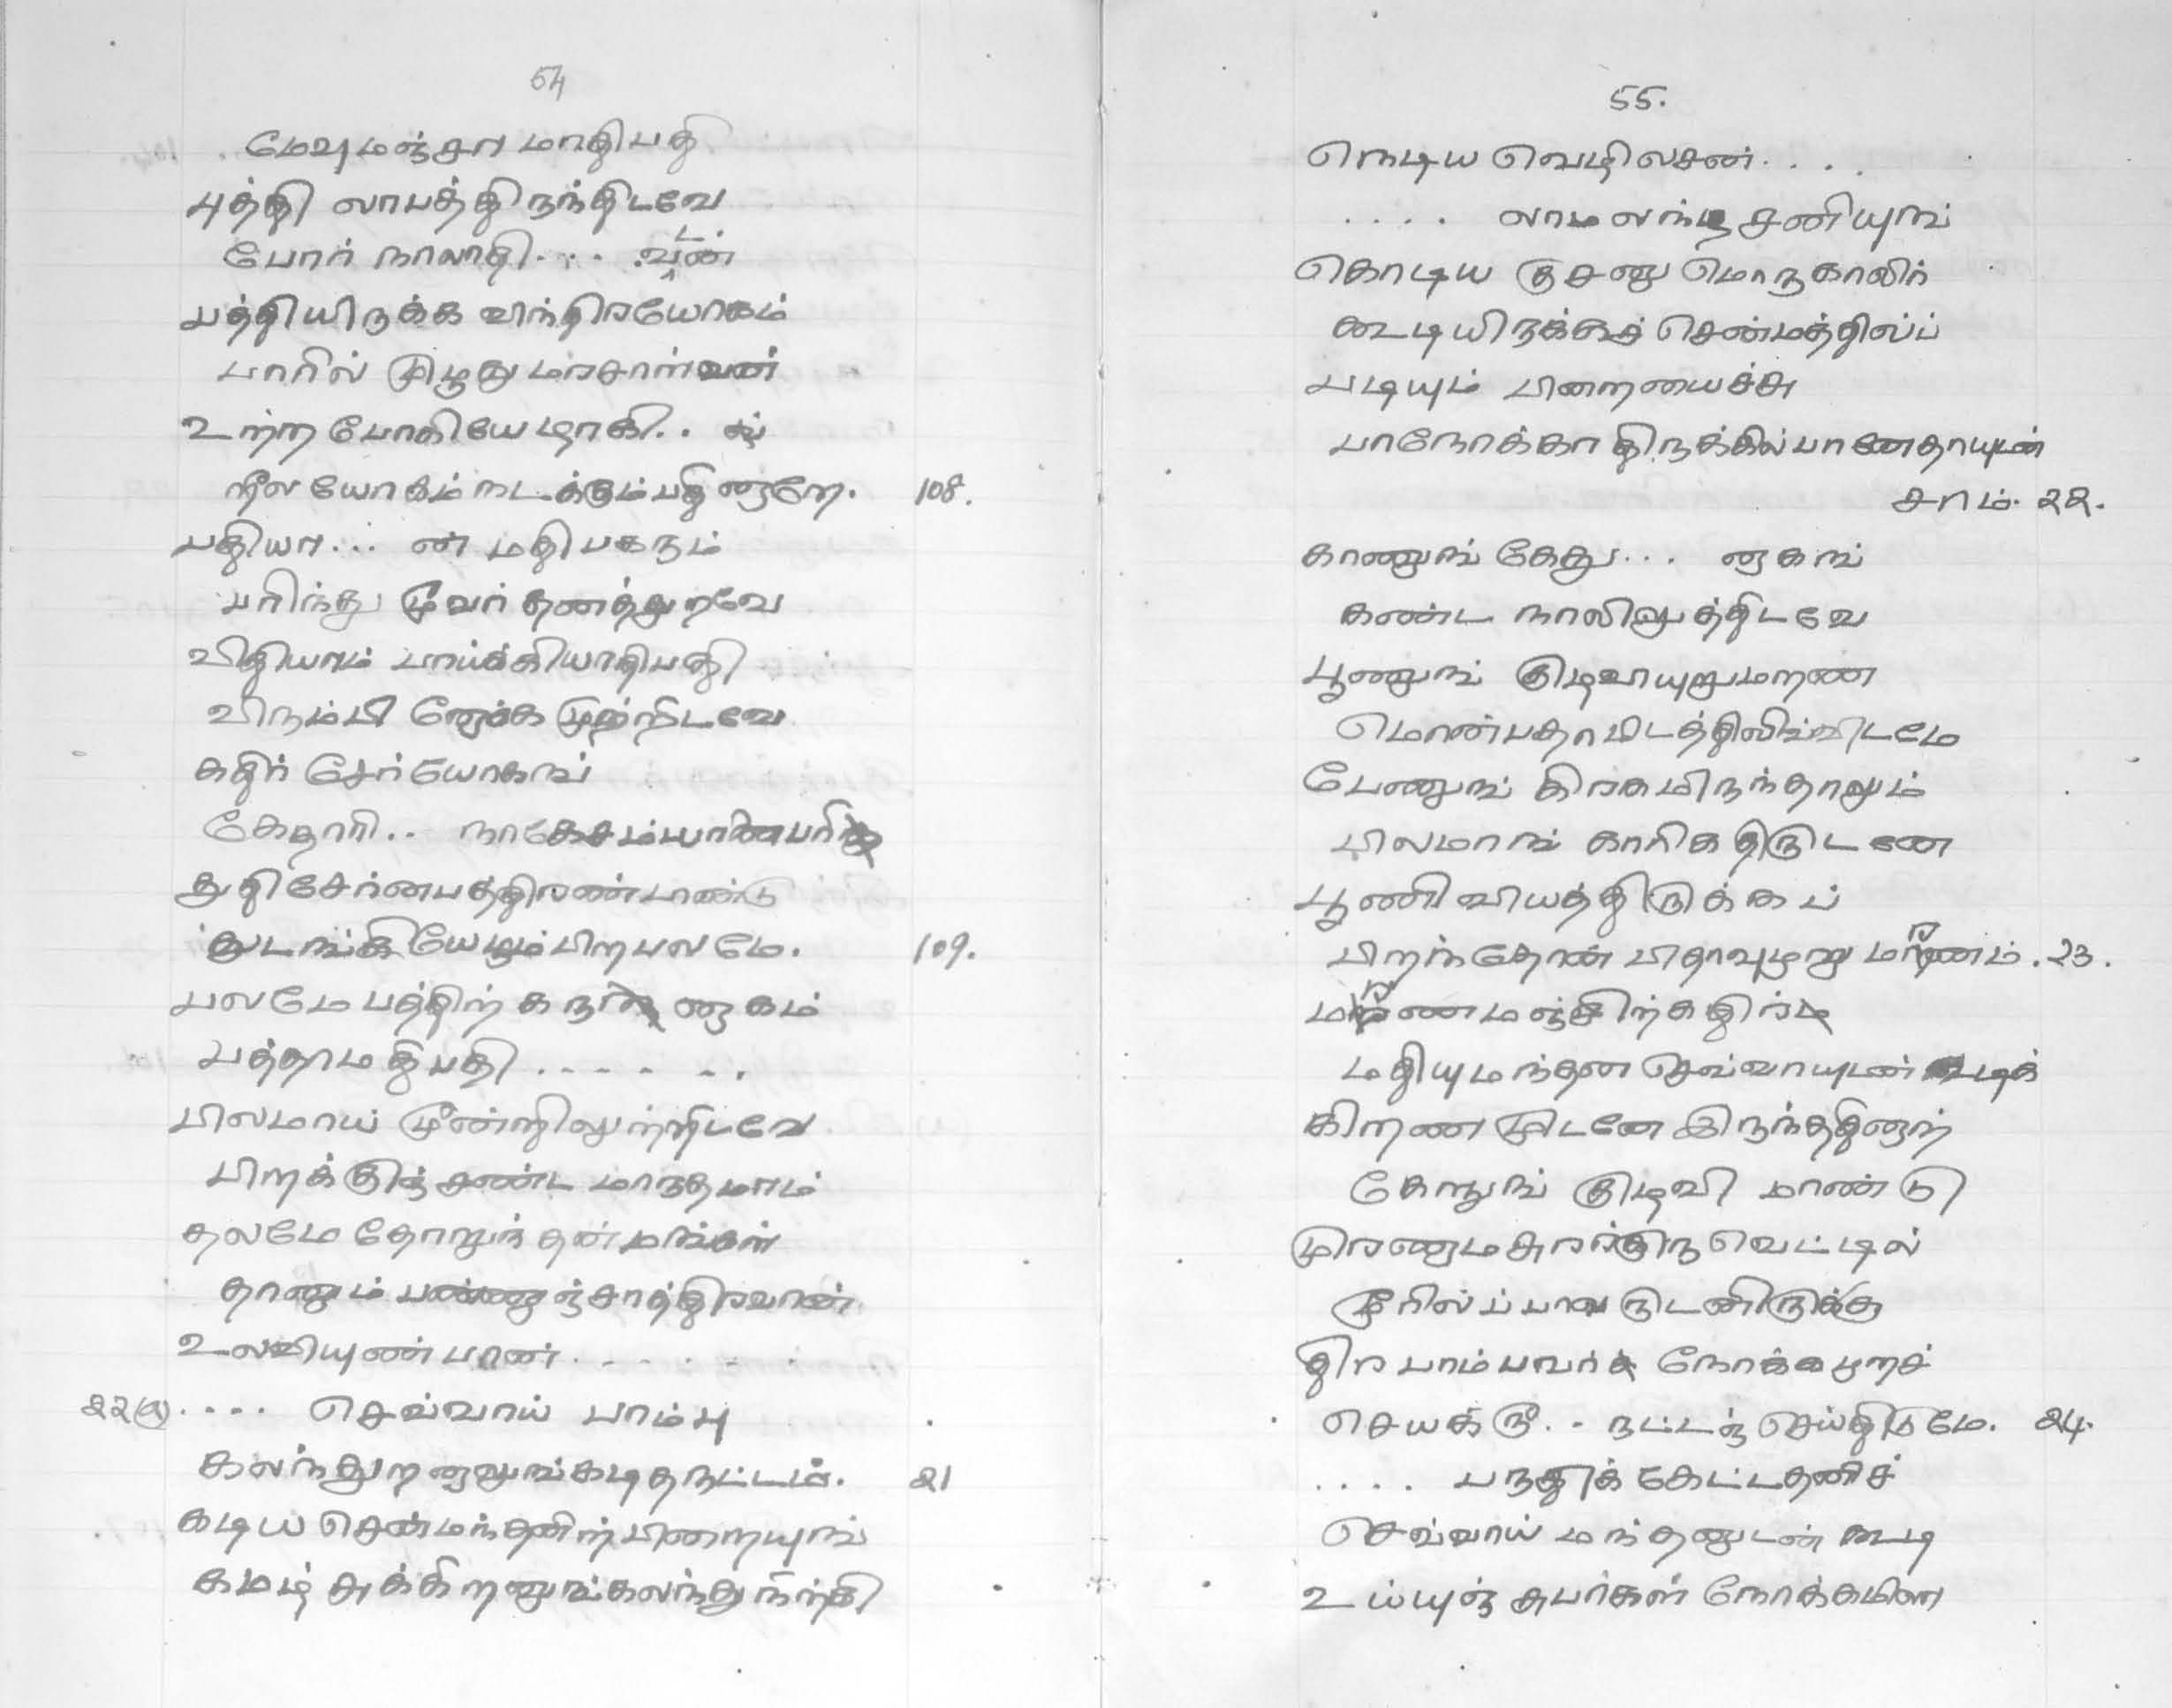 54
மேவுமஞ்சா மாதிபதி
புத்தி லாபத்திருந்திடவே
போர் நாலாதி . . . . வடன்
பத்தியிருக்க விந்திரயோகம்
பாரில் முழுதுமரசாள்வன்
உற்ற போகியேழாகி . . ல்
நீல யோகம் நடக்கும்பதினாறே. 108.
பதியா . . . ன் மதி பகரும்
பரிந்து மூவர் தனத்துறவே
விதியாம் பாய்க்கியாதிபதி
விரும்பி னோக்க முற்றிடவே
கதிர் சேர்யோகங்
கேதாரி . .
துதிசேர்னபத்திரண்டாண்டு
துடங்கியேழும்பிறபலமே. 109.
பலமே பத்திற் கரு னாகம்
பத்தாமதிபதி . . . . . .
பிலமாய் மூன்றிலுற்றிடவே
பிறக்குஞ்சண்ட மாருதமாம்
தலமே தோறுந் தன்மங்கள்
தானும் பண்ணுஞ்சாத்திரவான்
உலவியுண்பான் . . . . . .
22(a) . . . . செவ்வாய் பாம்பு
கலந்துறனாலுங்கடிதநட்டம். 21
கடிய சென்மந்தனிற்பிறையுங்
கமழ் சுக்கிறனுங்கலந்து நிற்கி
55.
நெடிய வெழிலசன் . . . .
. . . . லாமலந்த சனியுங்
கொடிய குசனு மொருகாலிற்
கூடியிருக்கச் சென்மத்தில்ப்
படியும் பிறையைச்சு
பாநோக்கா திருக்கில்பானோயுடன்
சாம். 22.
காணுங் கேது . . . னாகங்
கண்ட நாலிலுத்திடவே
பூணுங் குழவியுறுமறண
மொன்பதாமிடத்திலிவ்விடமே
பேணுங் கிரகமிருந்தாலும்
பிலமாங் காரிக திருடனை
பூணிவியத்திருக்கப்
பிறந்தோன் பிதாவுமுறு மரணம். 23.
மரணமஞ்சிற்கதிர்
மதியுமந்தன செவ்வாயுடன் கூடிக்
கிறண முடனே இருந்ததினாற்
கேளுங் குழவி மாண்டு
முரணுமசுரர்குரு வெட்டில்
மூரில்ப் பானு டனிருக்க
திர பாம்பவர்க் நோக்கமுறச்
செயக் கு . . நட்டஞ் செய்திடுமே. 24.
. . . . பருதிக் கேட்டதனிச்
செவ்வாய் மந்தனுடன் கூடி
உய்யுஞ் சுபர்கள் நோக்கமிலா